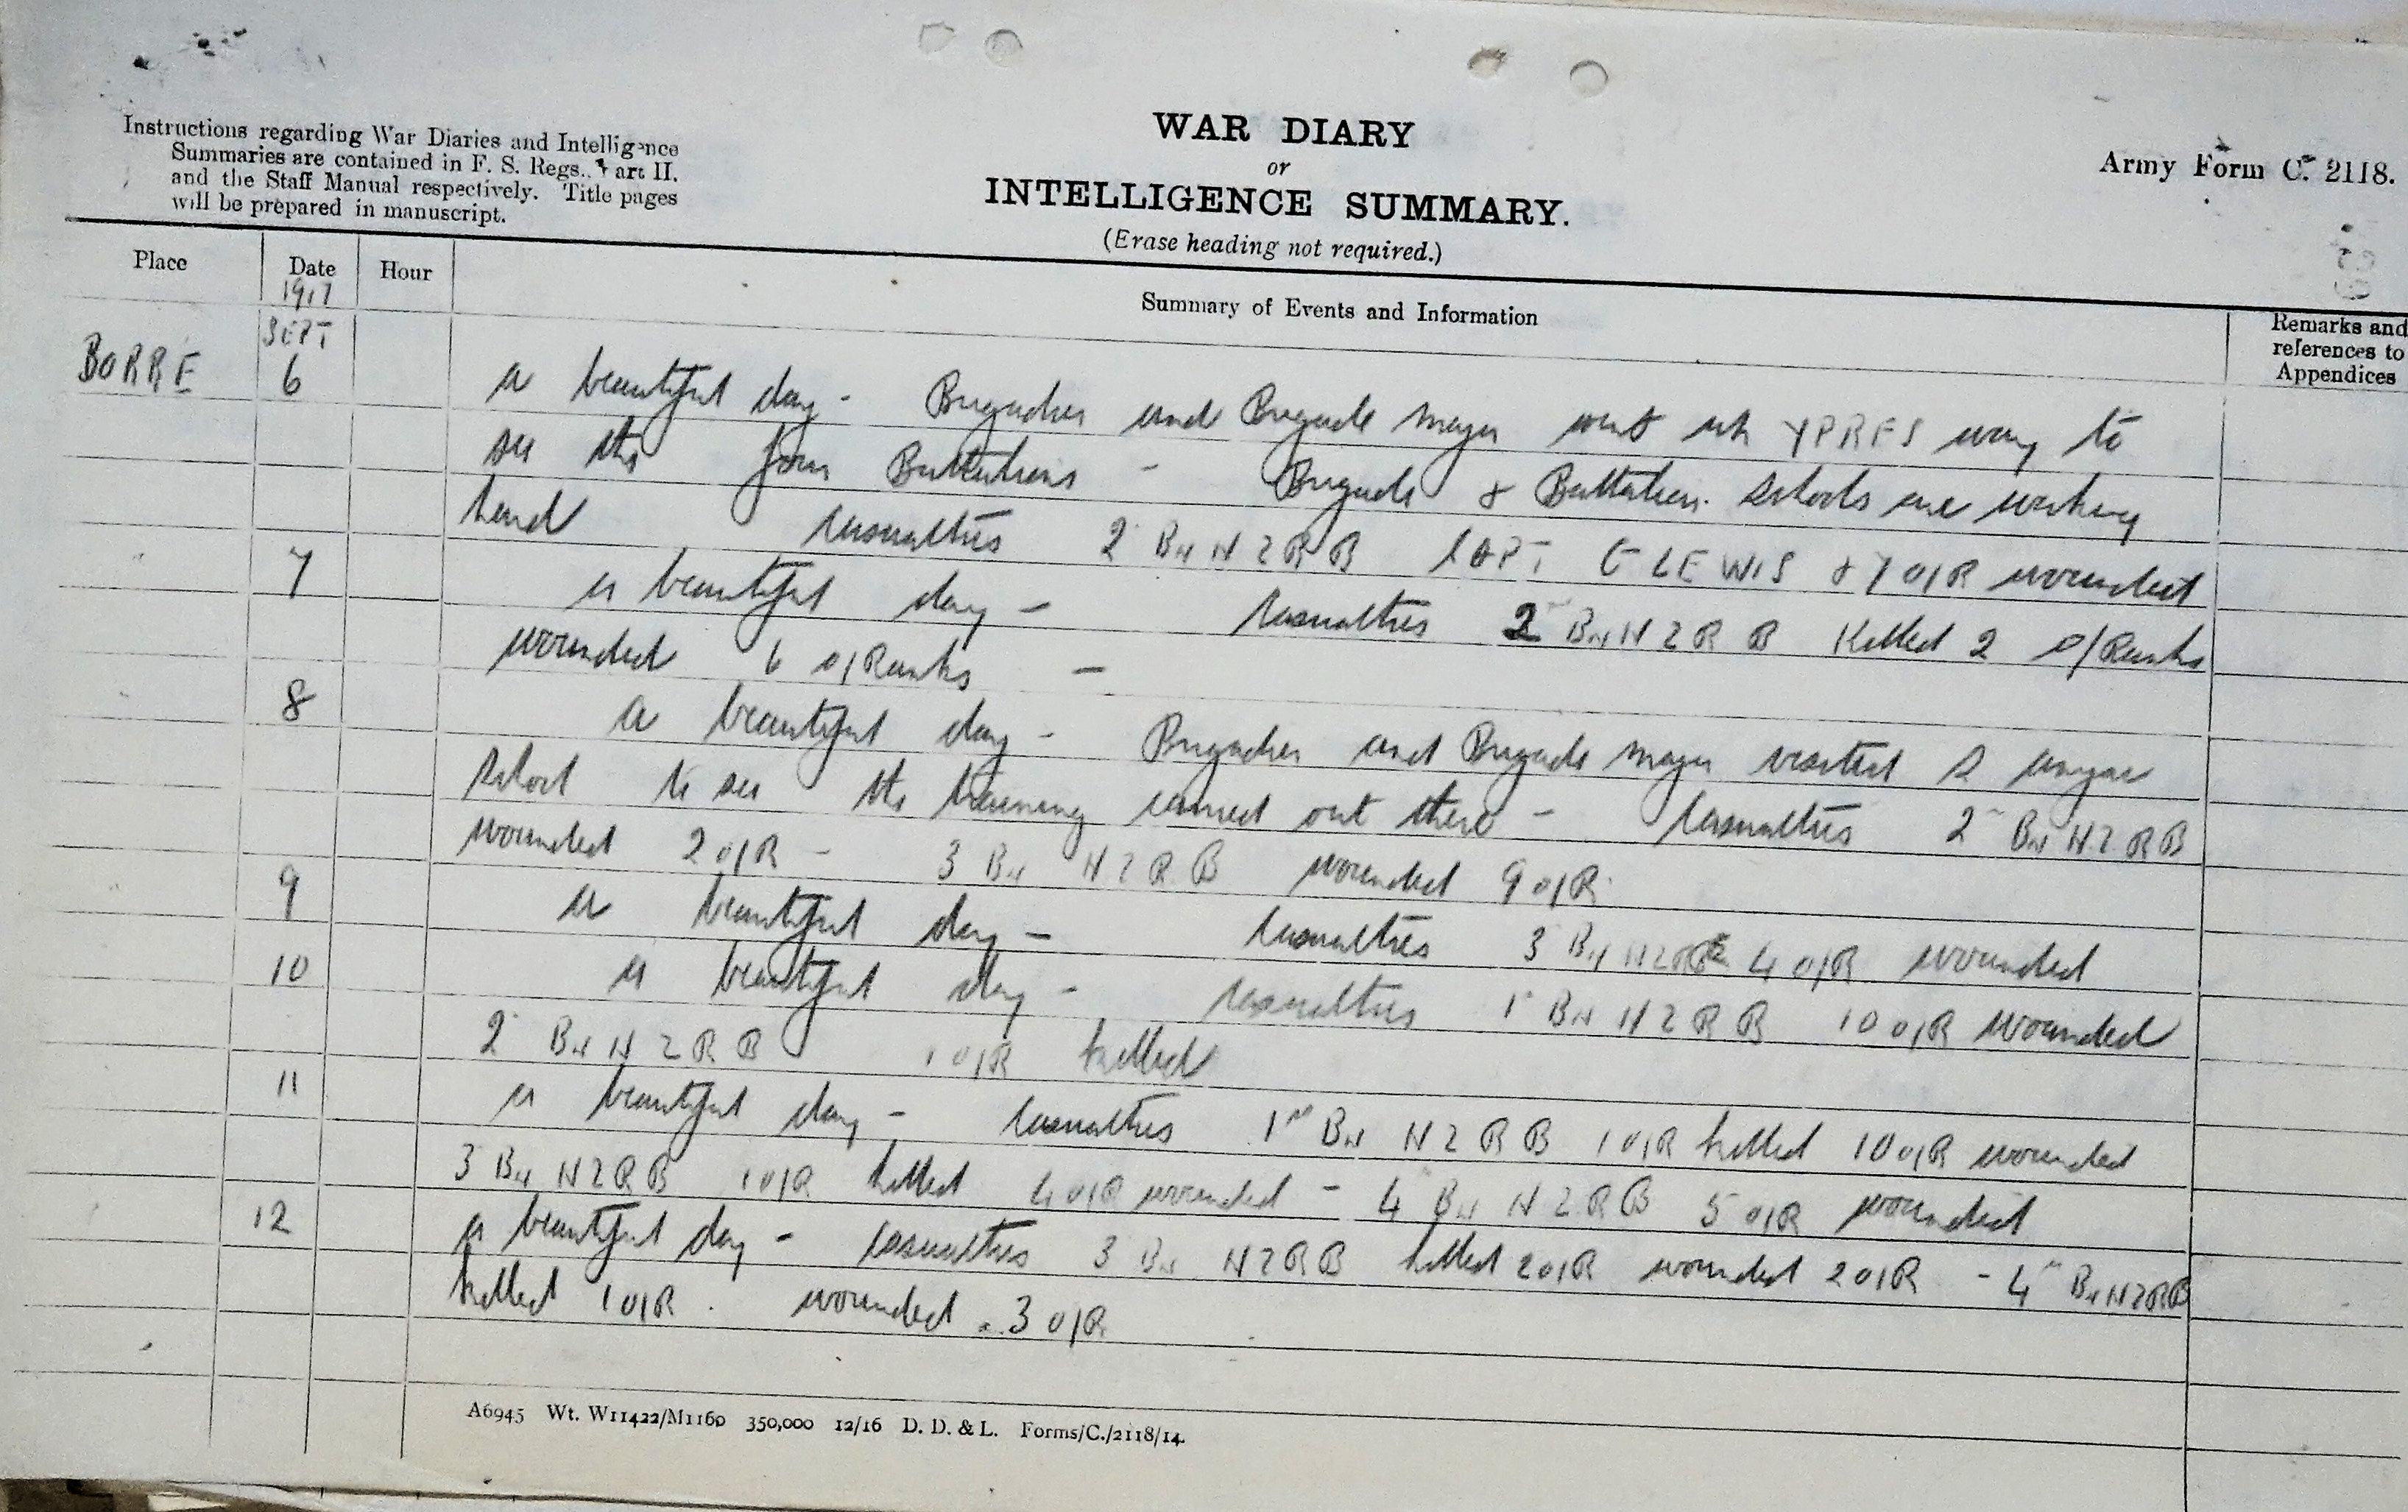 Instructions regarding War Diaries and Intelligence
Summaries are contained in F. S. Regs., Part II.
and the Staff Manual respectively. Title pages
will be prepared in manuscript.
WAR DIARY
or
INTELLIGENCE SUMMARY.
(Erase heading not required.)
Army Form C. 2118.
Place
Date
Hour
Summary of Events and Information
Remarks and
references to
Appendices
1917
SEPT
BORRE 6 a beautiful day - Brigadier and Brigade Major went up YPRES way to
see the four Battalions - Brigade & Battalion Schools are working
hard Casualties 2 Bn NZRB CAPT E LEWIS & 7 O/R wounded
7 a beautiful day - Casualties 2 Bn NZRB Killed 2 O/Ranks
wounded 6 O/Ranks -
8 a beautiful day - Brigadier and Brigade Major visited 2 Anzac
School to see the training carried out there - Casualties 2 Bn NZRB
wounded 2 O/R - 3 Bn NZRB wounded 9 O/R
9 a beautiful day - Casualties 3 Bn NZRB 4 O/R wounded
10 a beautiful day - Casualties 1 Bn NZRB 10 O/R wounded
2 Bn NZRB 1 O/R killed
11 a beautiful day - Casualties 1st Bn NZRB 1 O/R killed 10 O/R wounded
3 Bn NZRB 1 O/R killed 4 O/R wounded - 4 Bn NZRB 5 O/R wounded
12 a beautiful day - Casualties 3 Bn NZRB killed 2 O/R wounded 2 O/R - 4 Bn NZRB
killed 1 O/R. wounded 3 O/R
A6945 Wt. W11422/M1160 350,000 12/16 D. D. & L. Forms/C./2118/14.